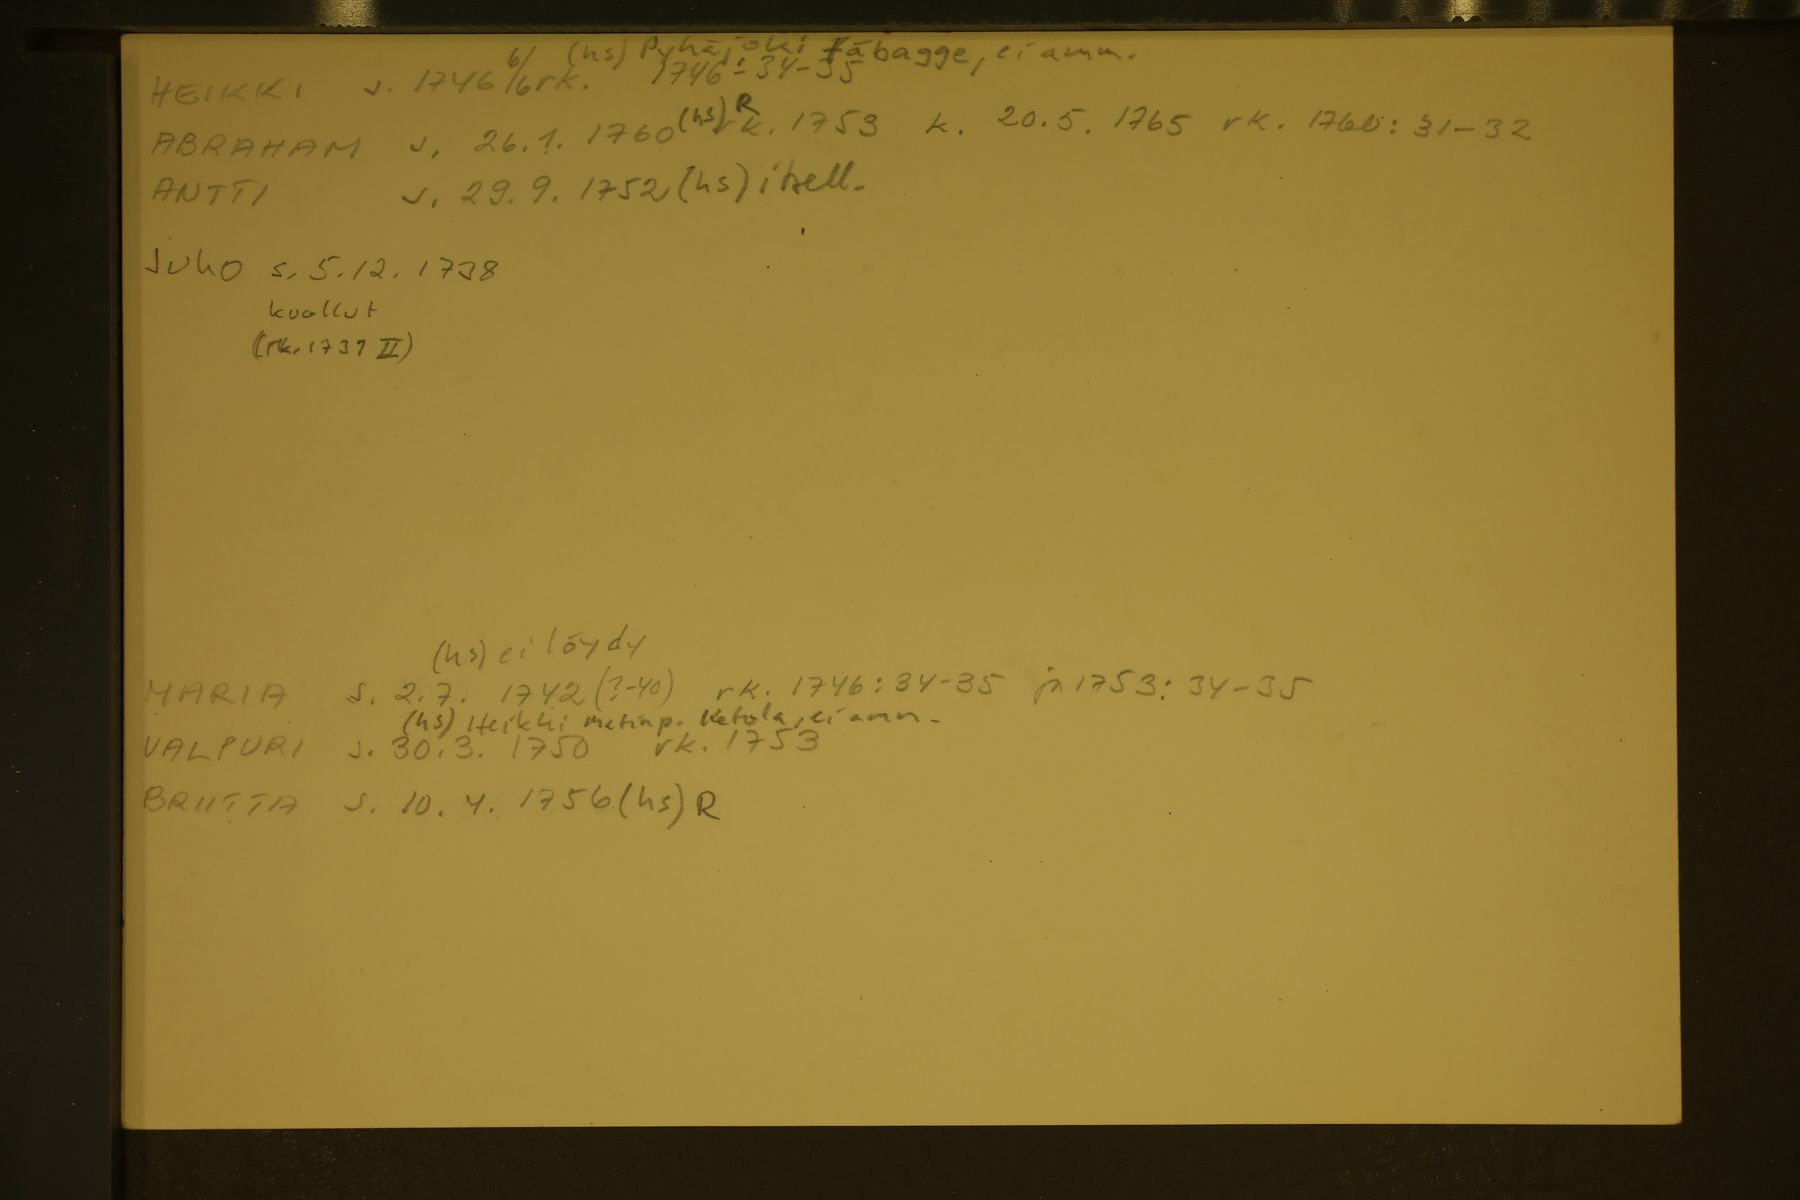 6/ (hs) Pyhäjoki Fäbagge, ei amm.
HEIKKI s. 1746 /6 rk. 1746: 34-35
ABRAHAM s. 26.1. 1760 (hs) R rk. 1753 k. 20.5. 1765 rk. 1760: 31-32
ANTTI s. 29.9. 1752 (hs) itsell.
Juho s. 5.12. 1738
kuollut
(rk. 1739 II)
(hs) ei löydy
MARIA s. 2.7. 1742 (?-40) rk. 1746: 34-35 ja 1753: 34-35
(hs) Heikki Matinp. Ketola, ei amm.
VALPURI s. 30.3. 1750 rk. 1753
BRIITTA s. 10.4. 1756 (hs) R